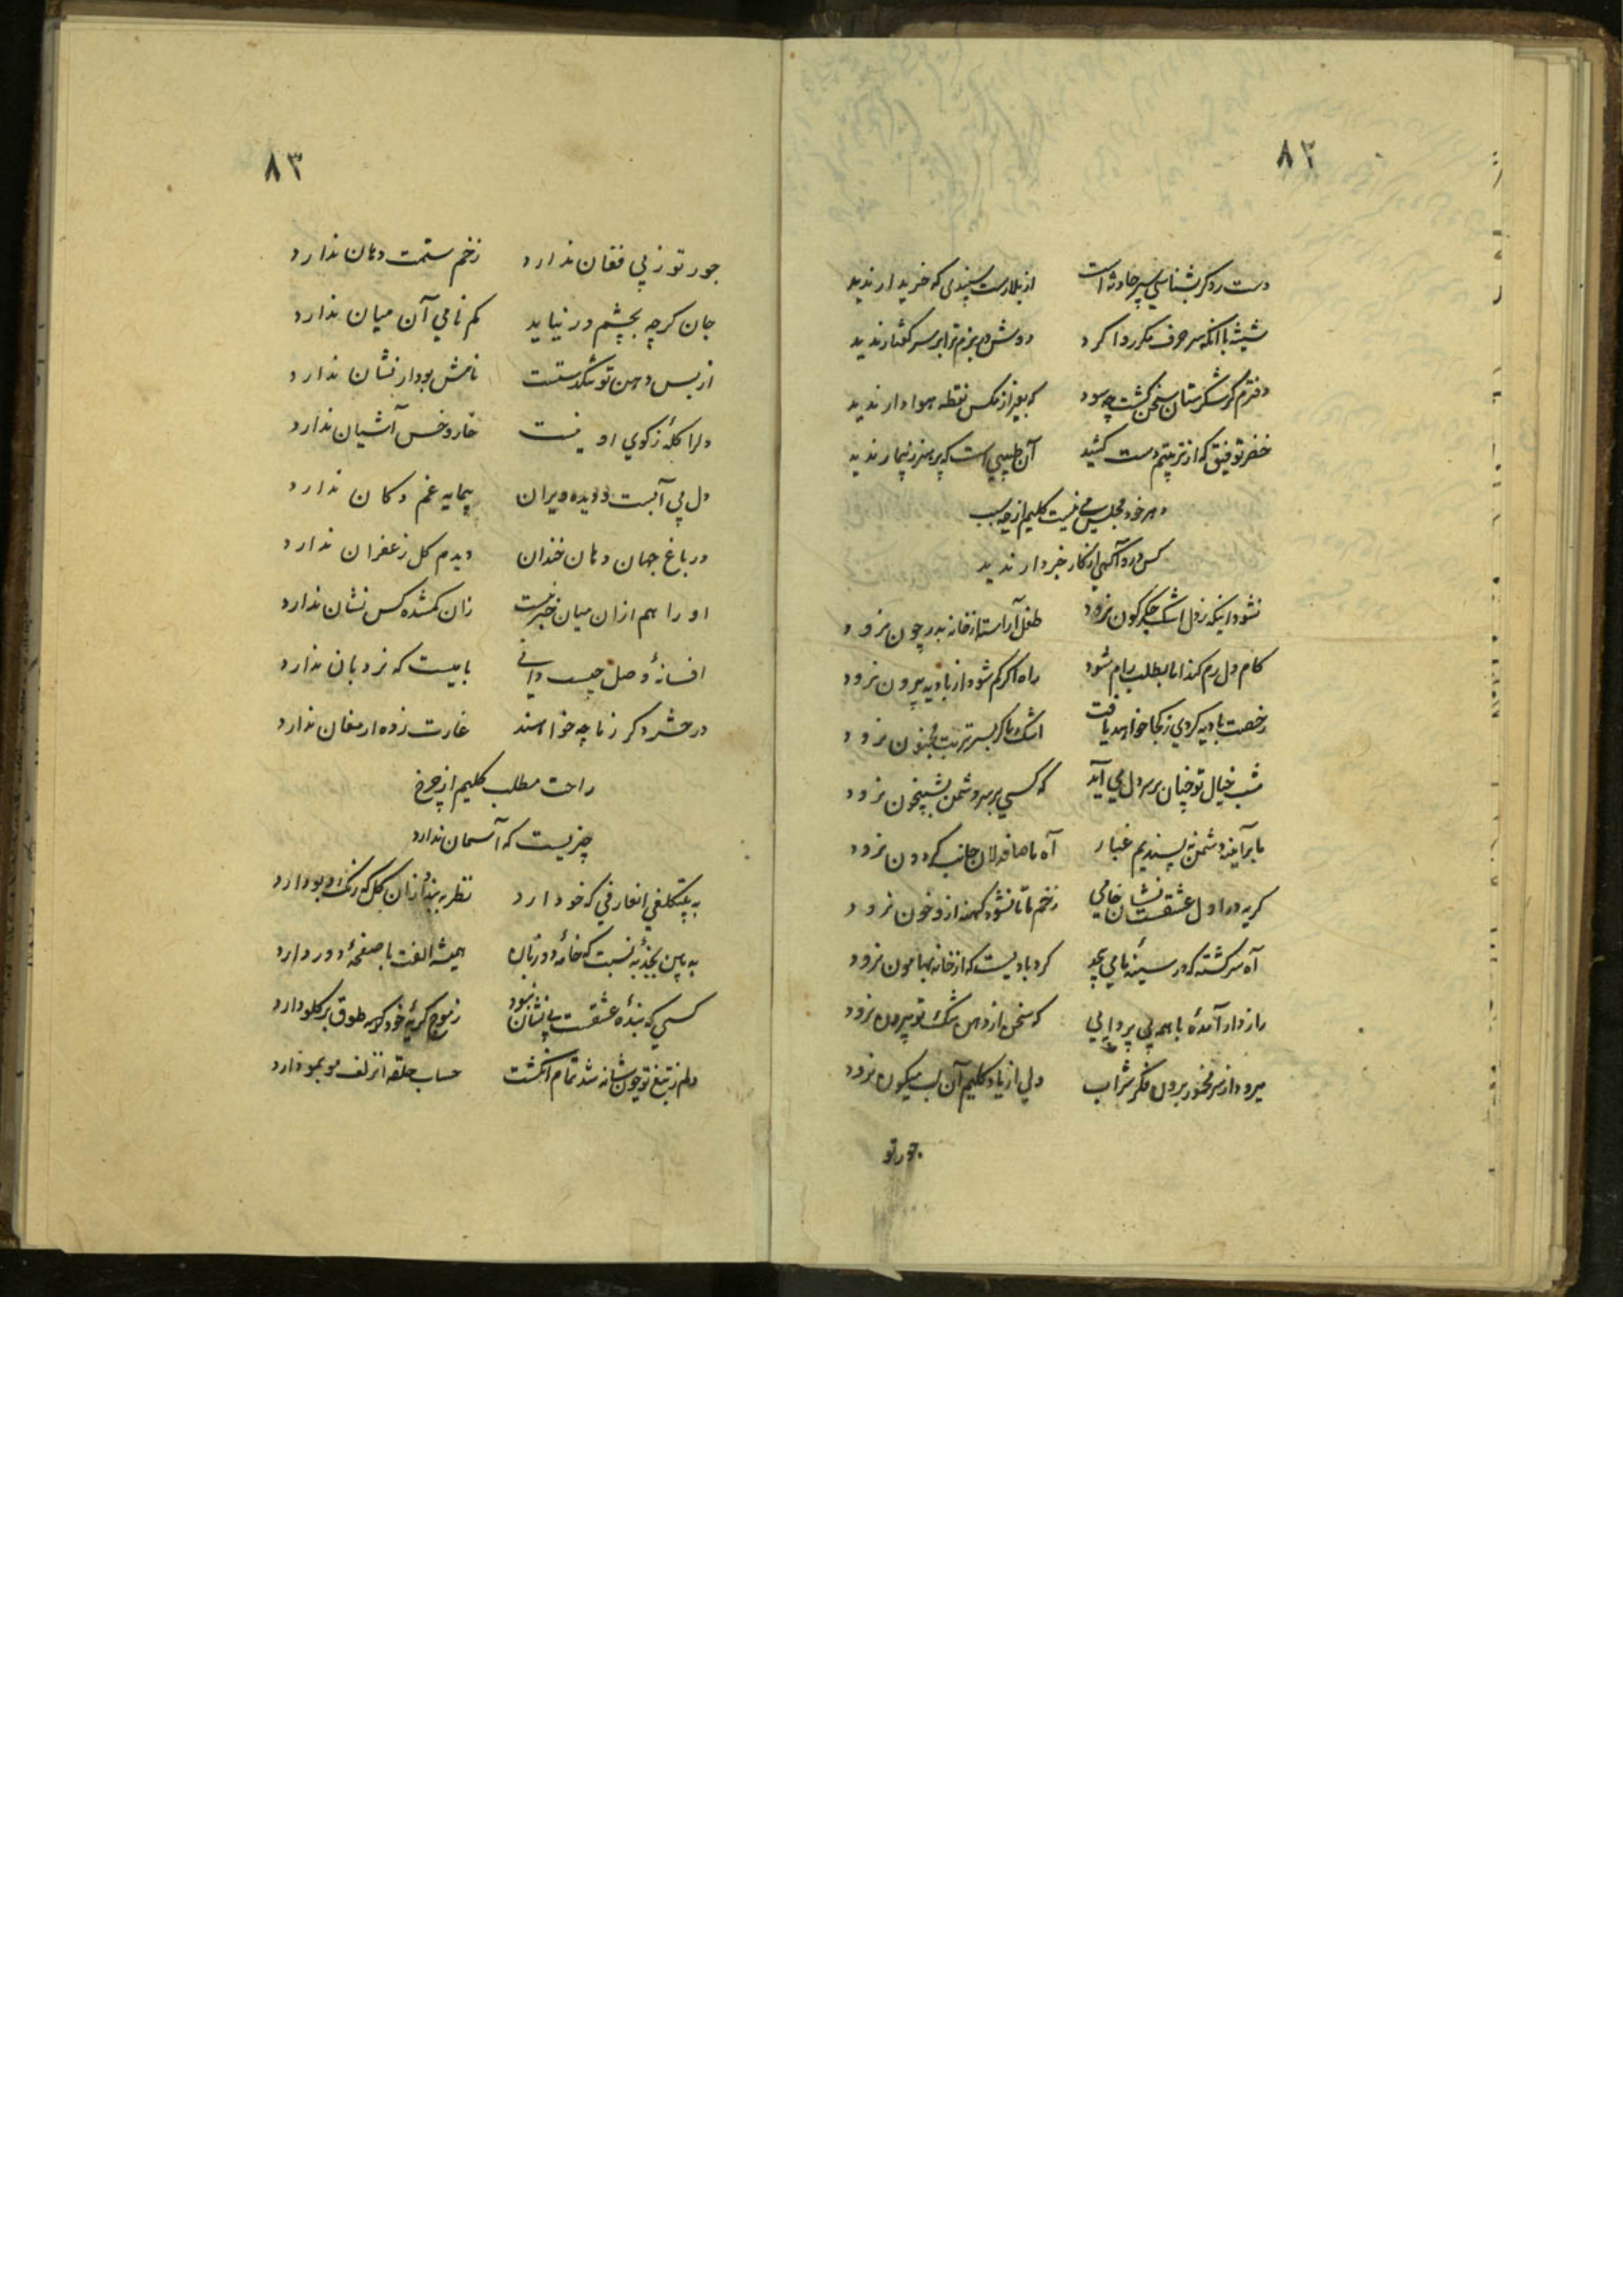 ٨٢
دست رد گر بشناسی سپر حادثه است از بلا رست سپندی که خریدار ندید
شیشه با آنکه سر حرف مکرر وا کرد دوش در بزم ترا بر سر گفتار ندید
دفترم گر شکرستان سخن گشت چه سود که بغیر از مگس نقطه هوادار ندید
خضر توفیق که از تربیتم دست کشید آن طبیبی است که پرهیز ز بیمار ندید
در خور مجلس می نیست کلیم از چه سبب
کس در و آگهی از کار خبردار ندید
نشود اینکه ز دل اشک جگرگون نرود طفل آراسته از خانه بدر چون نرود
کام دل رم کند اما بطلب رام شود راه اگر گم شود از بادیه بیرون نرود
رخصت بادیه گردی ز کجا خواهد یافت اشک ما گر بسر تربت مجنون نرود
شب خیال تو چنان بر سر دل می آید که کسی بر سر دشمن بشبیخون نرود
ما بر آیینه دشمن نپسندیم غبار آه ما صاف دلان جانب گردون نرود
گریه در اول عشقست نشان خامی زخم ما تا نشود کهنه ازو خون نرود
آه سرگشته که در سینه ما می پیچد گردبادیست که از خانه بهامون نرود
راز دار آمده با همه بی پروایی که سخن از دهن تنگ تو بیرون نرود
میرود از سر مخمور برون فکر شراب ولی از یاد کلیم آن لب میگون نرود
جور تو
٨٣
جور تو ز پی فغان ندارد زخم ستمت دهان ندارد
جان گرچه بچشم در نیاید گم نامی آن میان ندارد
از بس دهن تو تنگدستست نامش بود ار نشان ندارد
دلرا گله ز کوی او نیست خار و خس آشیان ندارد
دل بی آبست و دیده ویران پیمایه غم دکان ندارد
در باغ جهان دهان خندان دیدم گل زعفران ندارد
او را هم ازان میان خبر نیست زان گمشده کس نشان ندارد
افسانه وصل چیست دانی بامیست که نردبان ندارد
در حشر دگر ز ما چه خواهند غارت زده ارمغان ندارد
راحت مطلب کلیم از چرخ
چیزیست که آسمان ندارد
به بیتکلفی انعارفی که خو دارد نظر ببندد ازان گل که رنگ و بو دارد
به بین بجذبه نسبت که خامه دو زبان همیشه الفت با صفحه دو رو دارد
کسی که بنده عشقست بی نشان نبود ز موج گریه خود گر نه طوق بر گلو دارد
دلم ز تیغ تو چون شانه شد تمام انگشت حساب حلقه آن زلف مو بمو دارد